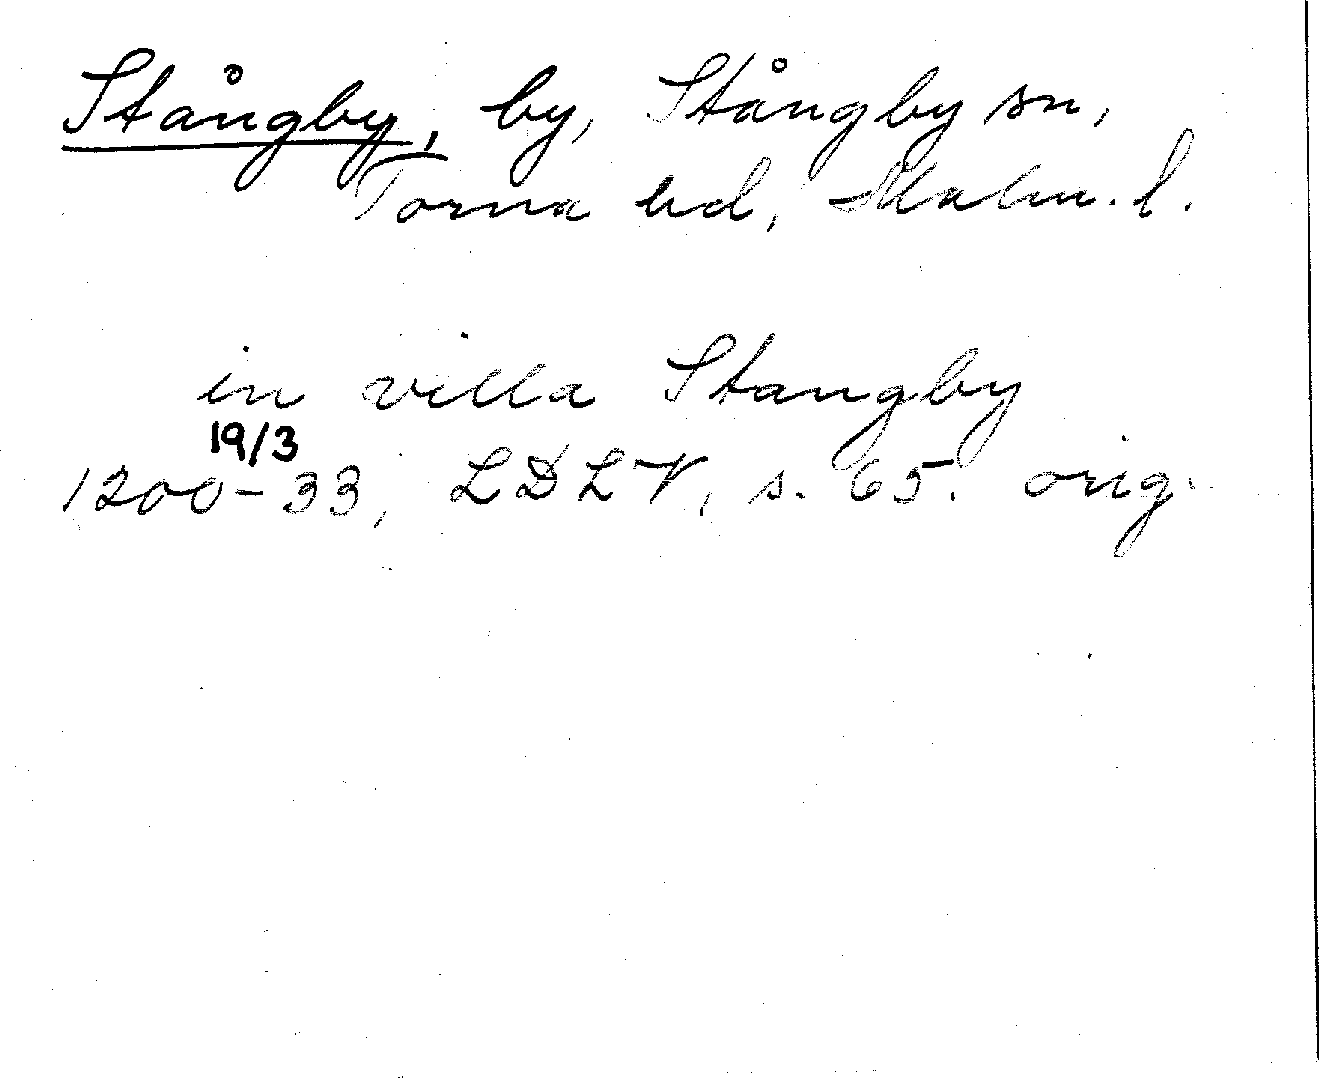 Stångby, by, Stångby sn,
Torna hd, Malm. l.
in villa Stangby
19/3
1200-33, LDLV, s. 65. orig.